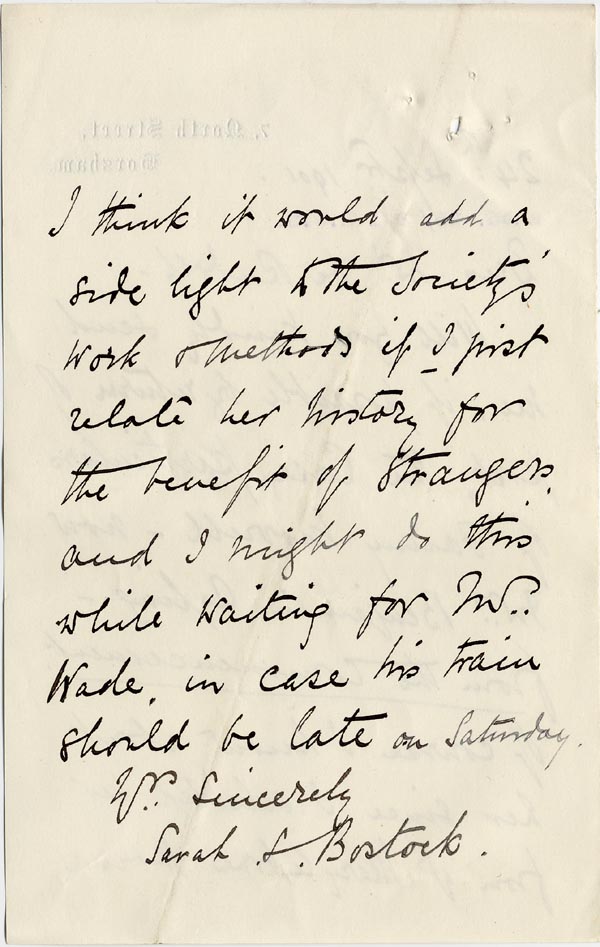 7, North Street,
Horsham
I think it would add a
side light to the Society's
work & methods if I just
relate her history for
the benefit of strangers,
and I might do this
while waiting for Mr.
Wade, in case his train
should be late on Saturday.
Yrs. Sincerely
Sarah L. Bostock.